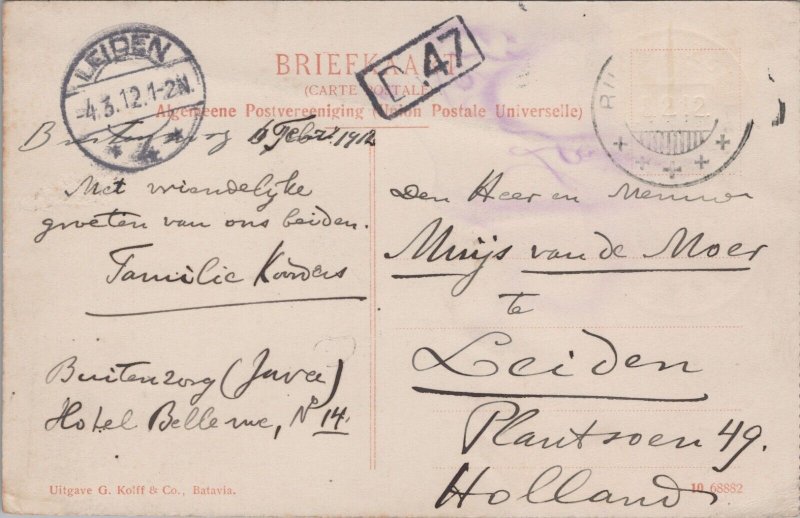 LEIDEN
-4.3.12.1-2N.
BRIEFKAART
(CARTE POSTALE)
.47
Algemeene Postvereeniging (Union Postale Universelle)
Buitenzorg 6 Febr. 1912
Met vriendelijke
groeten van ons beiden.
Familie Koorders
Buitenzorg (Java)
Hotel Bellevue, No 14.
Den Heer en Mevrouw
Muijs van de Moer
te
Leiden
Plantsoen 49.
Holland
Uitgave G. Kolff & Co., Batavia.
10 68882